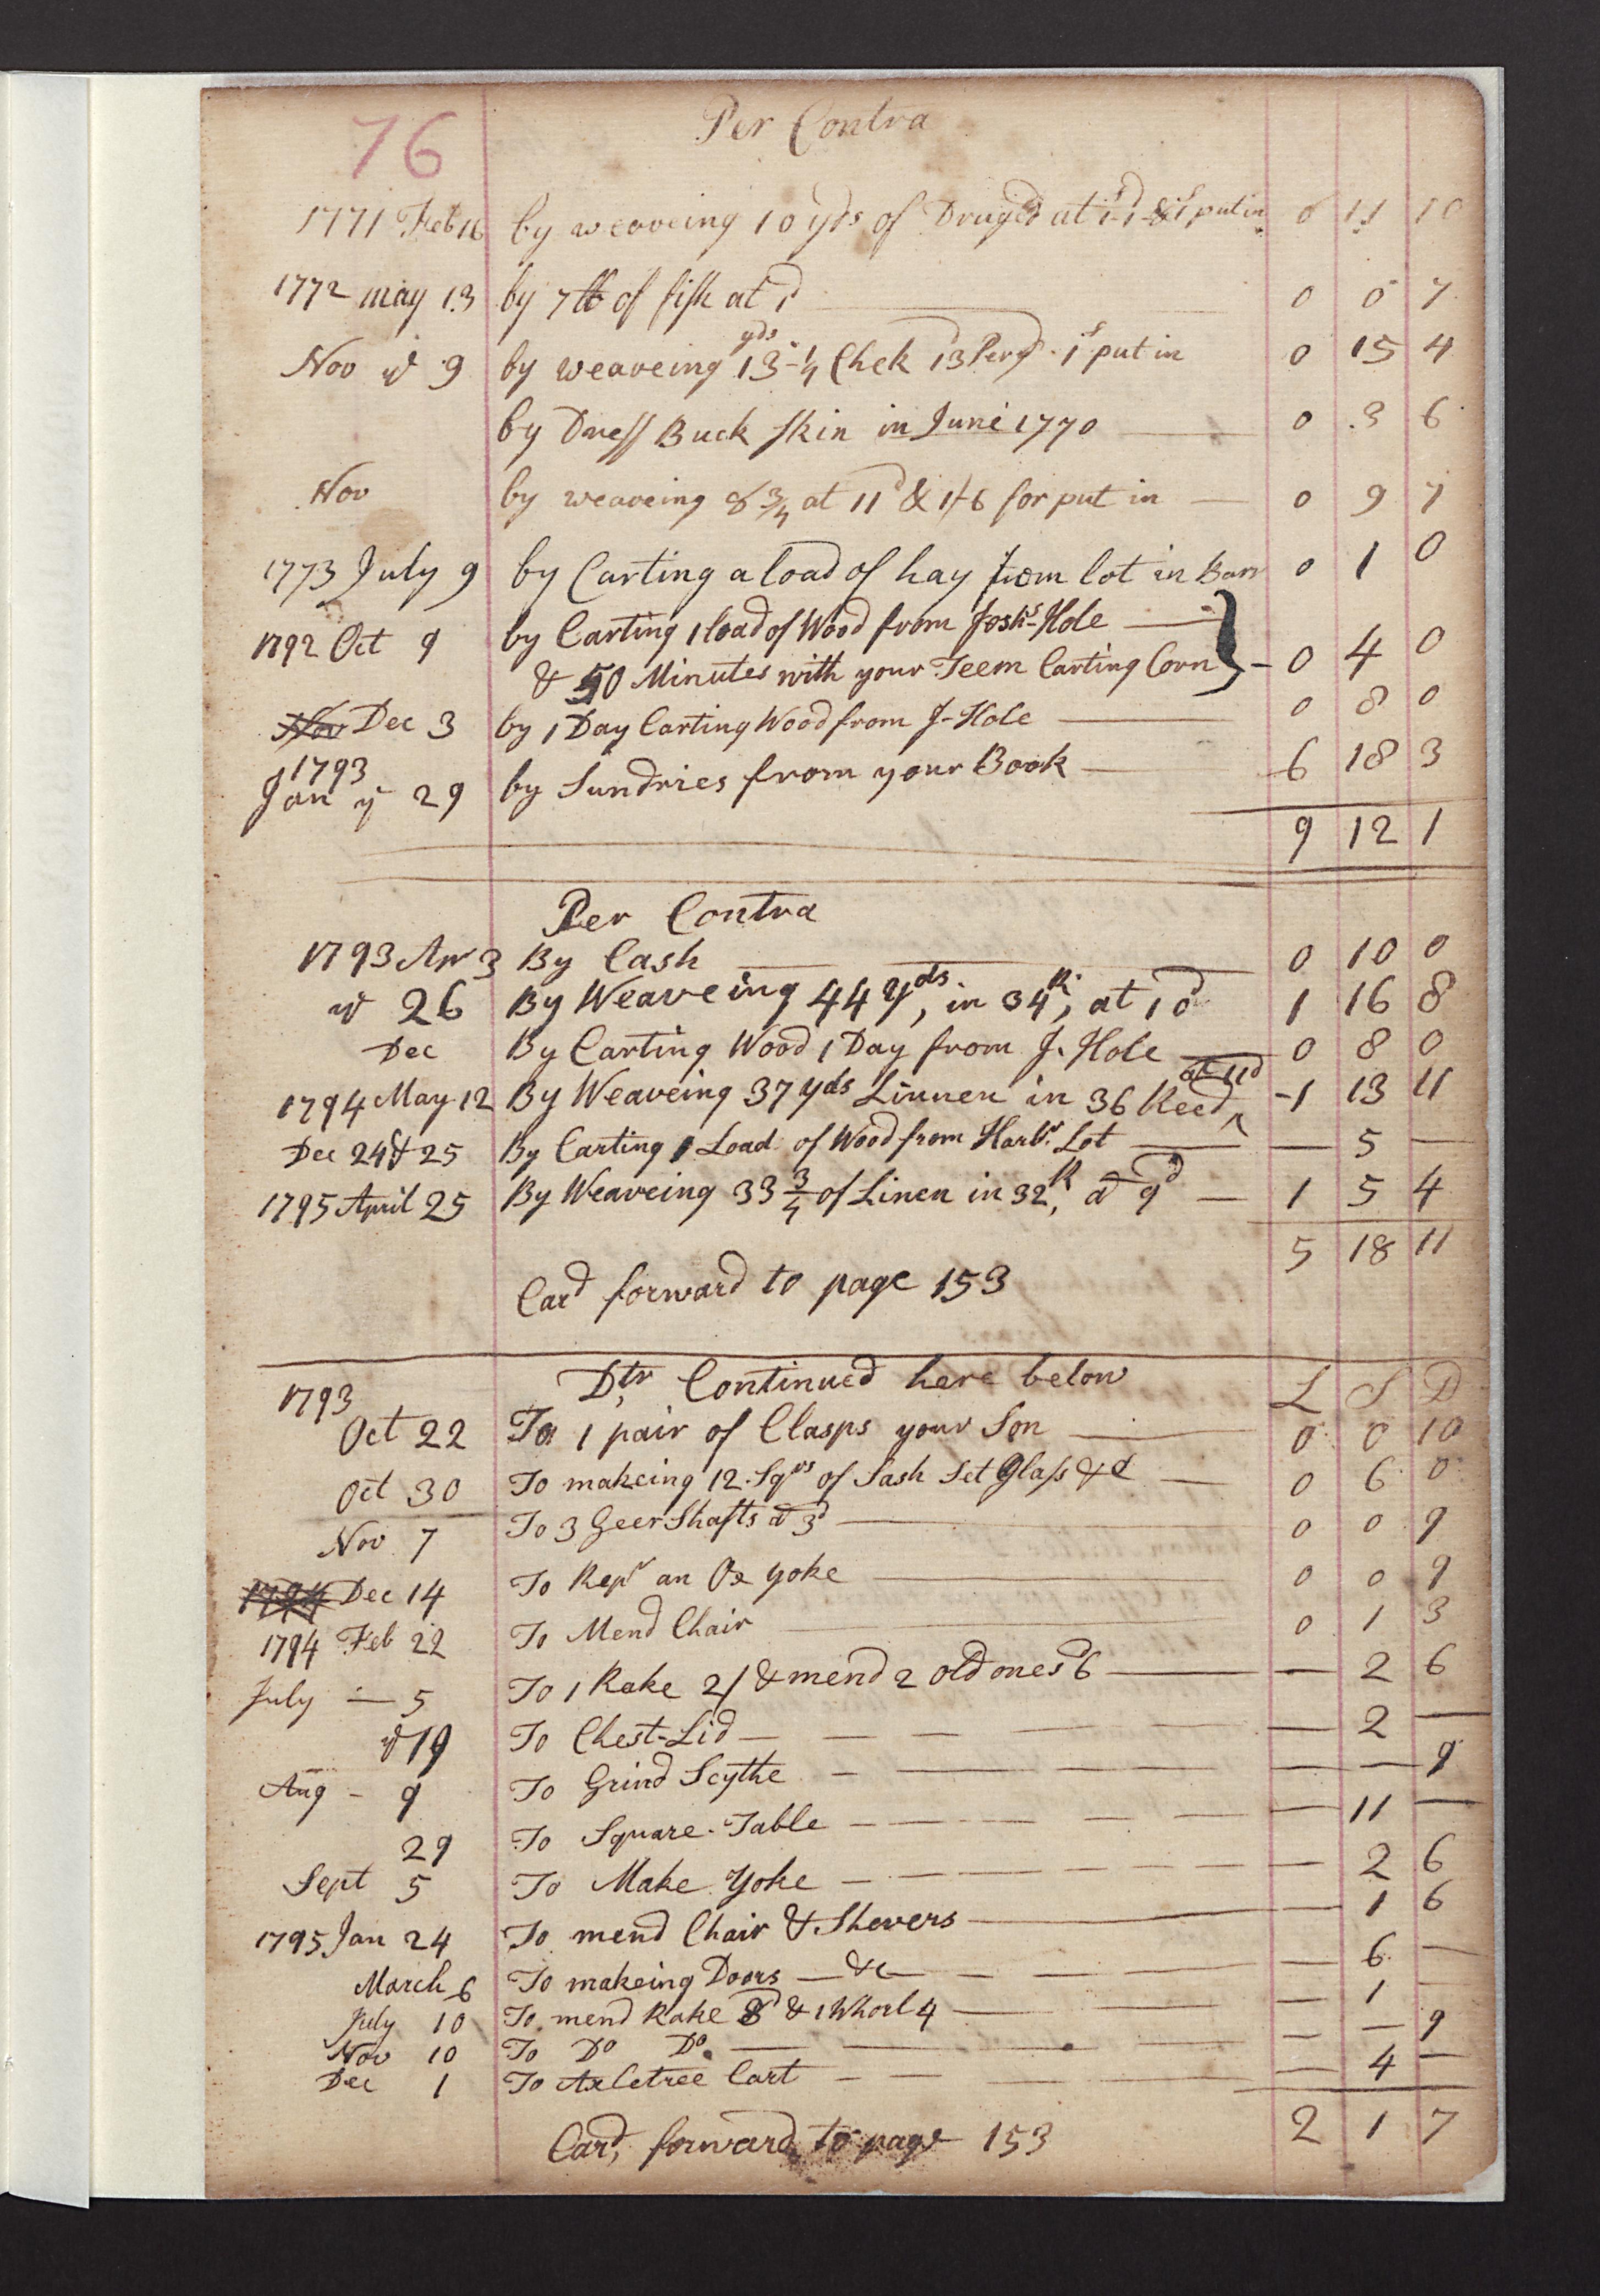 76
Per Contra
1771 Feb 16 by weaveing 10 yds of Druged at 1s-1d & 1s put in 0 11 10
1772 may 13 by 7 lb of fish at 1d 0 0 7
Nov ye 9 by weaveing 13-1/4 yds Chek 13 Per yd 1s put in 0 15 4
by Dress Buck skin in June 1770 0 3 6
Nov by weaveing 8 3/4 at 11d & 1/6 for put in 0 9 7
1773 July 9 by Carting a load of hay from lot in Barr 0 1 0
1792 Oct 9 by Carting 1 load of Wood from Joshs-Hole
& 50 Minutes with your Teem Carting Corn } - 0 4 0
Nov Dec 3 by 1 Day Carting Wood from J-Hole 0 8 0
1793
Jan ye 29 by Sundries from your Book 6 18 3
9 12 1
Per Contra
1793 Apr 3 By Cash 0 10 0
ye 26 By Weaveing 44 Yds, in 34R, at 10d 1 16 8
Dec By Carting Wood 1 Day from J. Hole 0 8 0
1794 May 12 By Weaveing 37 yds Linnen in 36 Reed ^ at 11d -1 13 11
Dec 24 & 25 By Carting 1 Load of Wood from Harbr. Lot — 5 —
1795 April 25 By Weaveing 33 3/4 of Linen in 32R, a 9d — 1 5 4
5 18 11
Card forward to page 153
1793 Dtr Continued here below L S D
Oct 22 To 1 pair of Clasps your Son 0 0 10
Oct 30 To makeing 12 Sqrs of Sash Set Glass &c — 0 6 0
Nov 7 To 3 Geer Shafts a 3d 0 0 9
1794 Dec 14 To Repr an Ox yoke 0 0 9
1794 Feb 22 To Mend Chair 0 1 3
July — 5 To 1 Rake 2/ & mend 2 old ones 6d — 2 6
ye 19 To Chest-Lid — 2 —
Aug - 9 To Grind Scythe — — 9
29 To Square-Table — 11 —
Sept 5 To Make Yoke — 2 6
1795 Jan 24 To mend Chair & Shevers — 1 6
March 6 To makeing Doors — &c — 6 —
July 10 To mend Rake 8d & 1 Whorl 4 — 1 —
Nov 10 To Do Do — — 9
Dec 1 To Axletree Cart — 4 —
Card, forward, to page 153 2 1 7